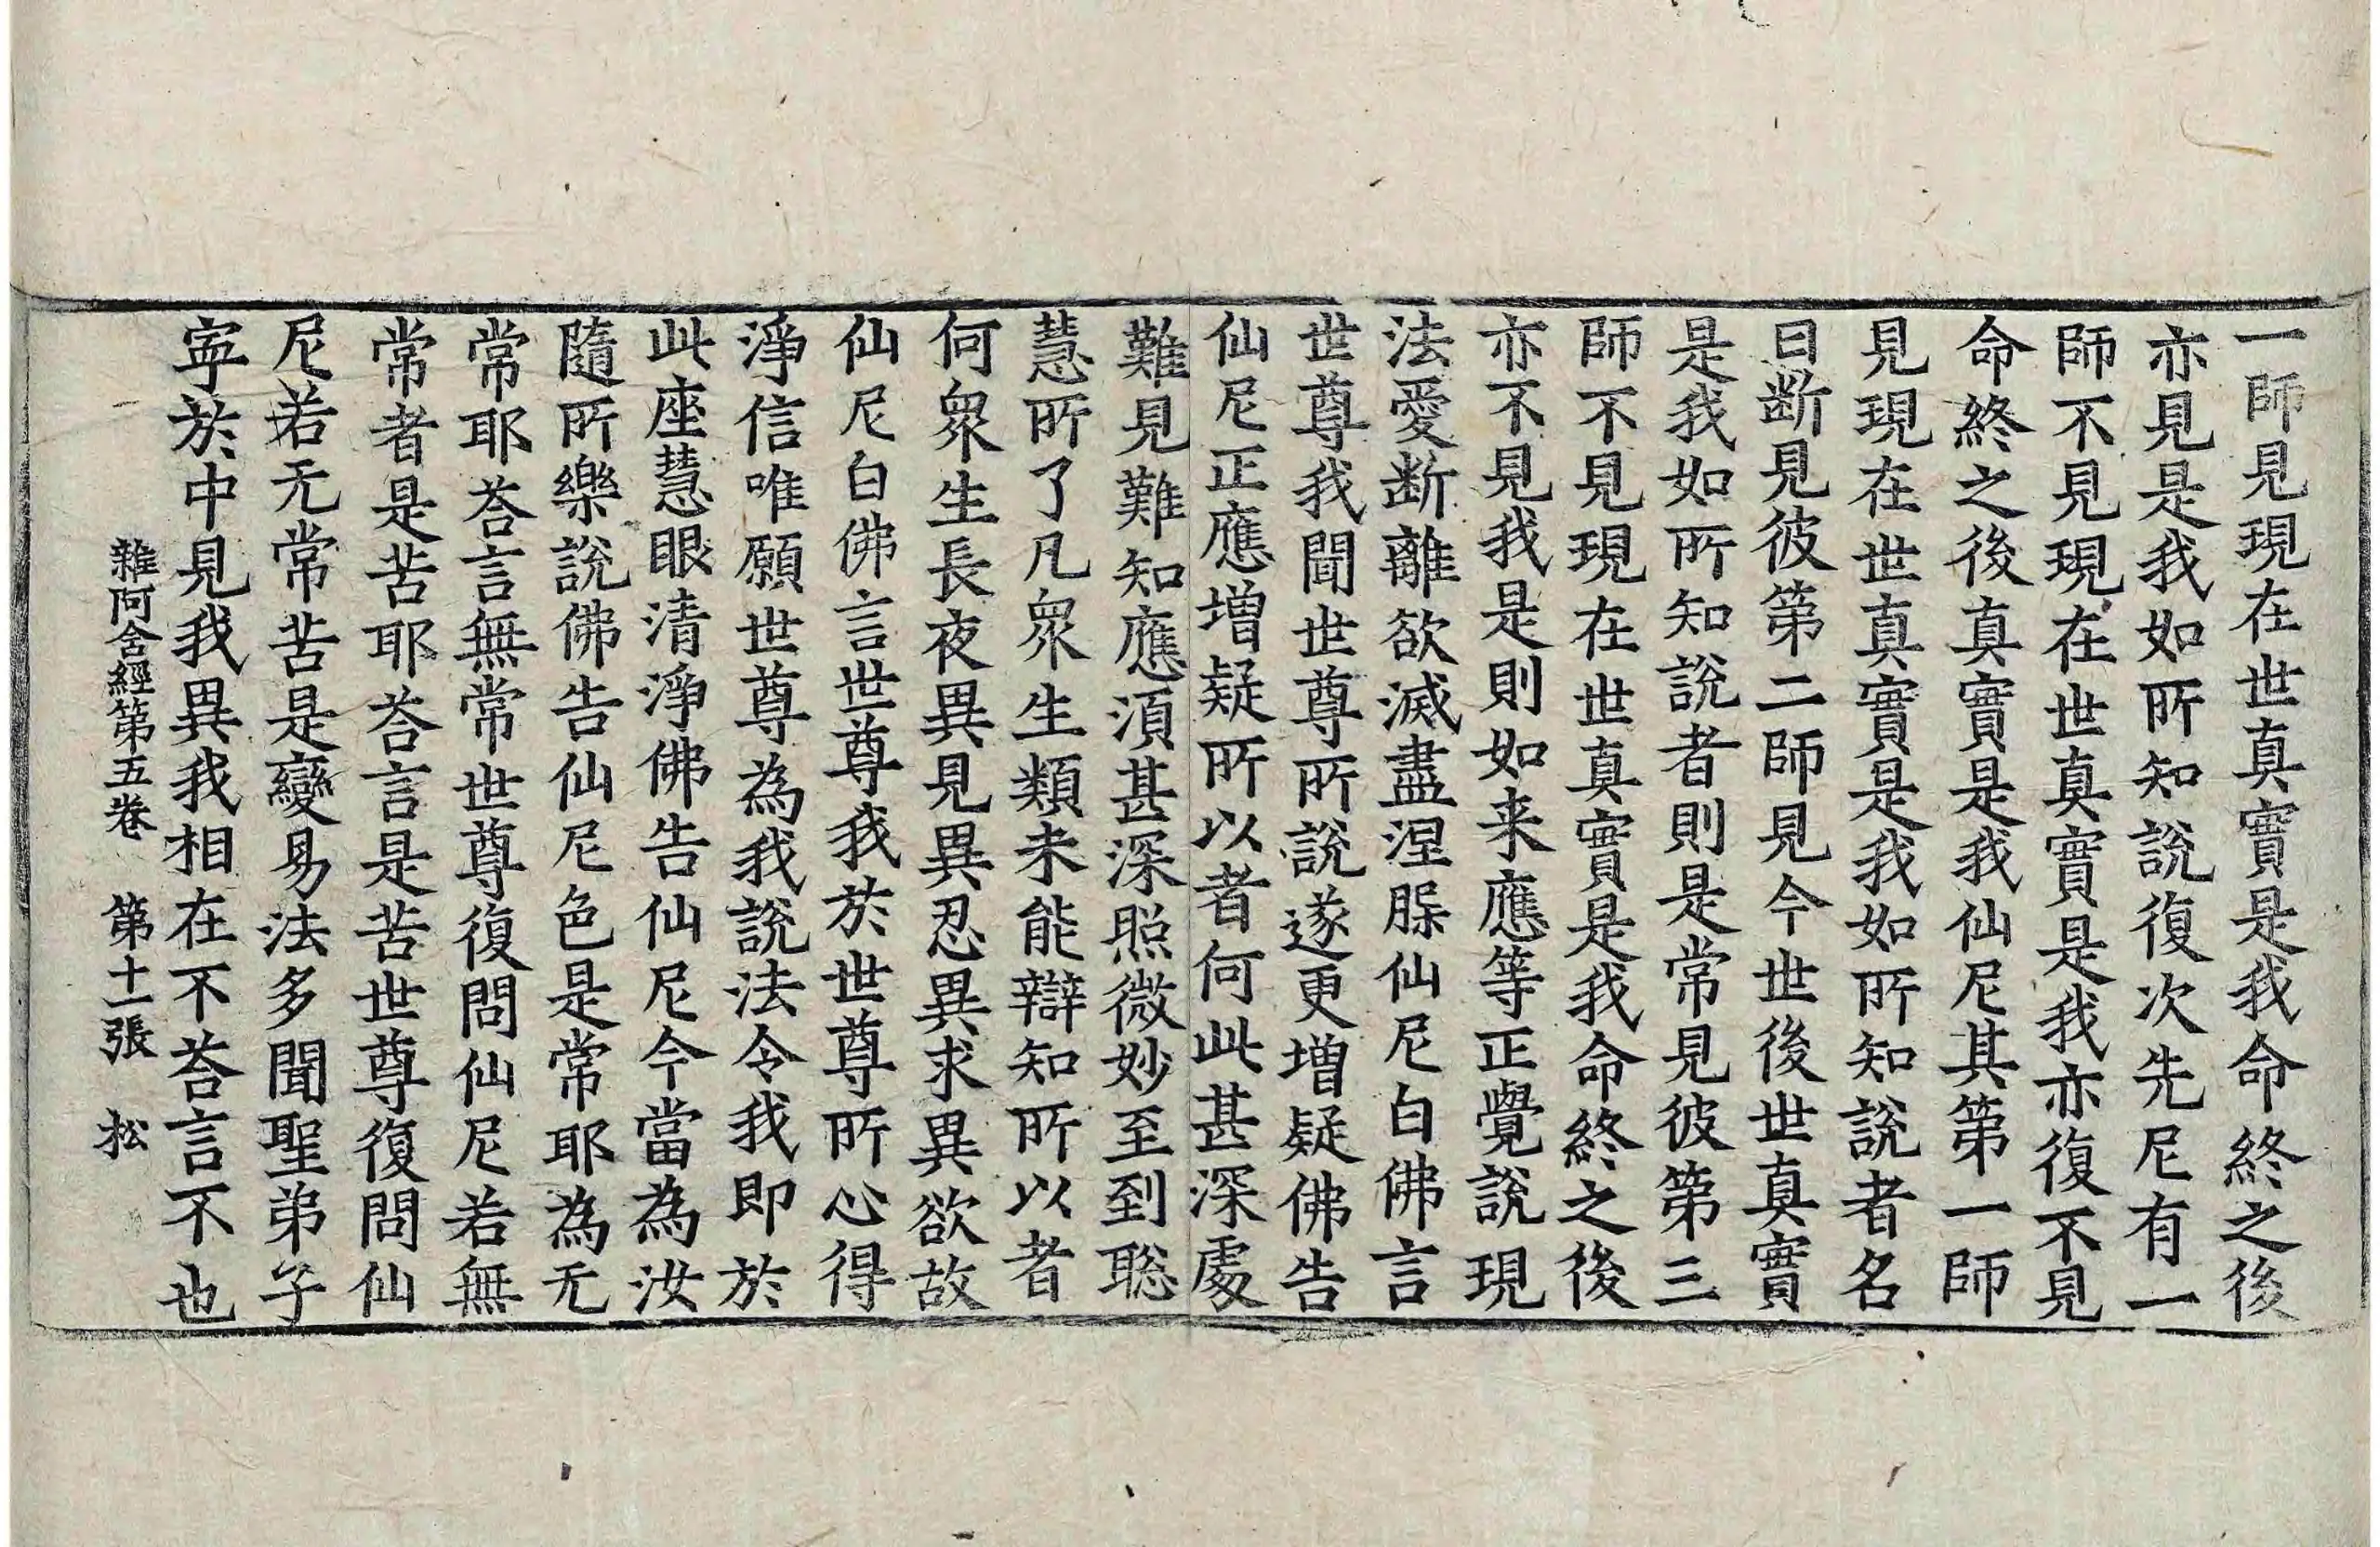 一師見現在世真實是我命終之後
亦見是我如所知說復次先尼有一
師不見現在世真實是我亦復不見
命終之後真實是我仙尼其第一師
見現在世真實是我如所知說者名
曰断見彼第二師見今世後世真實
是我如所知說者則是常見彼第三
師不見現在世真實是我命終之後
亦不見我是則如来應等正覺說現
法愛断離欲滅盡涅槃仙尼白佛言
世尊我聞世尊所說遂更增疑佛告
仙尼正應增疑所以者何此甚深處
難見難知應湏甚深照微妙至到聡
慧所了凡眾生類未能辯知所以者
何眾生長夜異見異忍異求異欲故
仙尼白佛言世尊我於世尊所心得
淨信唯願世尊為我說法令我即於
此座慧眼清淨佛告仙尼今當為汝
隨所樂說佛告仙尼色是常耶為无
常耶荅言無常世尊復問仙尼若無
常者是苦耶荅言是苦世尊復問仙
尼若无常苦是變易法多聞聖弟子
寕於中見我異我相在不荅言不也
雜阿含經第五卷　第十一張　松